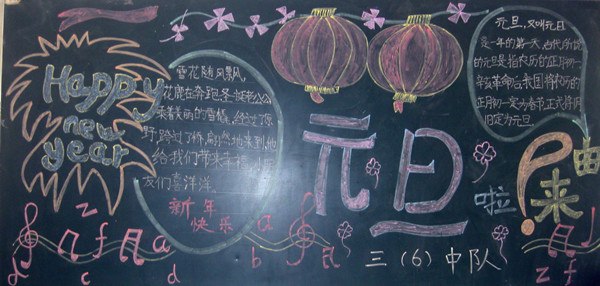 Happy
new
year
雪花随风飘,
花鹿在奔跑,圣诞老公公
乘着美丽的雪橇。经过了原
野,跨过了桥,
地来到,他
给我们带来幸福,小朋
友们喜洋洋。
新年
快乐
元旦
啦
来
曲
元旦,又叫元日
是一年的第一天,古代所说
的元旦是指农历的正月初一
辛亥革命后我国将农历的
正月初一定为春节,正式将阳
旧定为元旦。
三(6)中队
z f a
d c d
b
z f